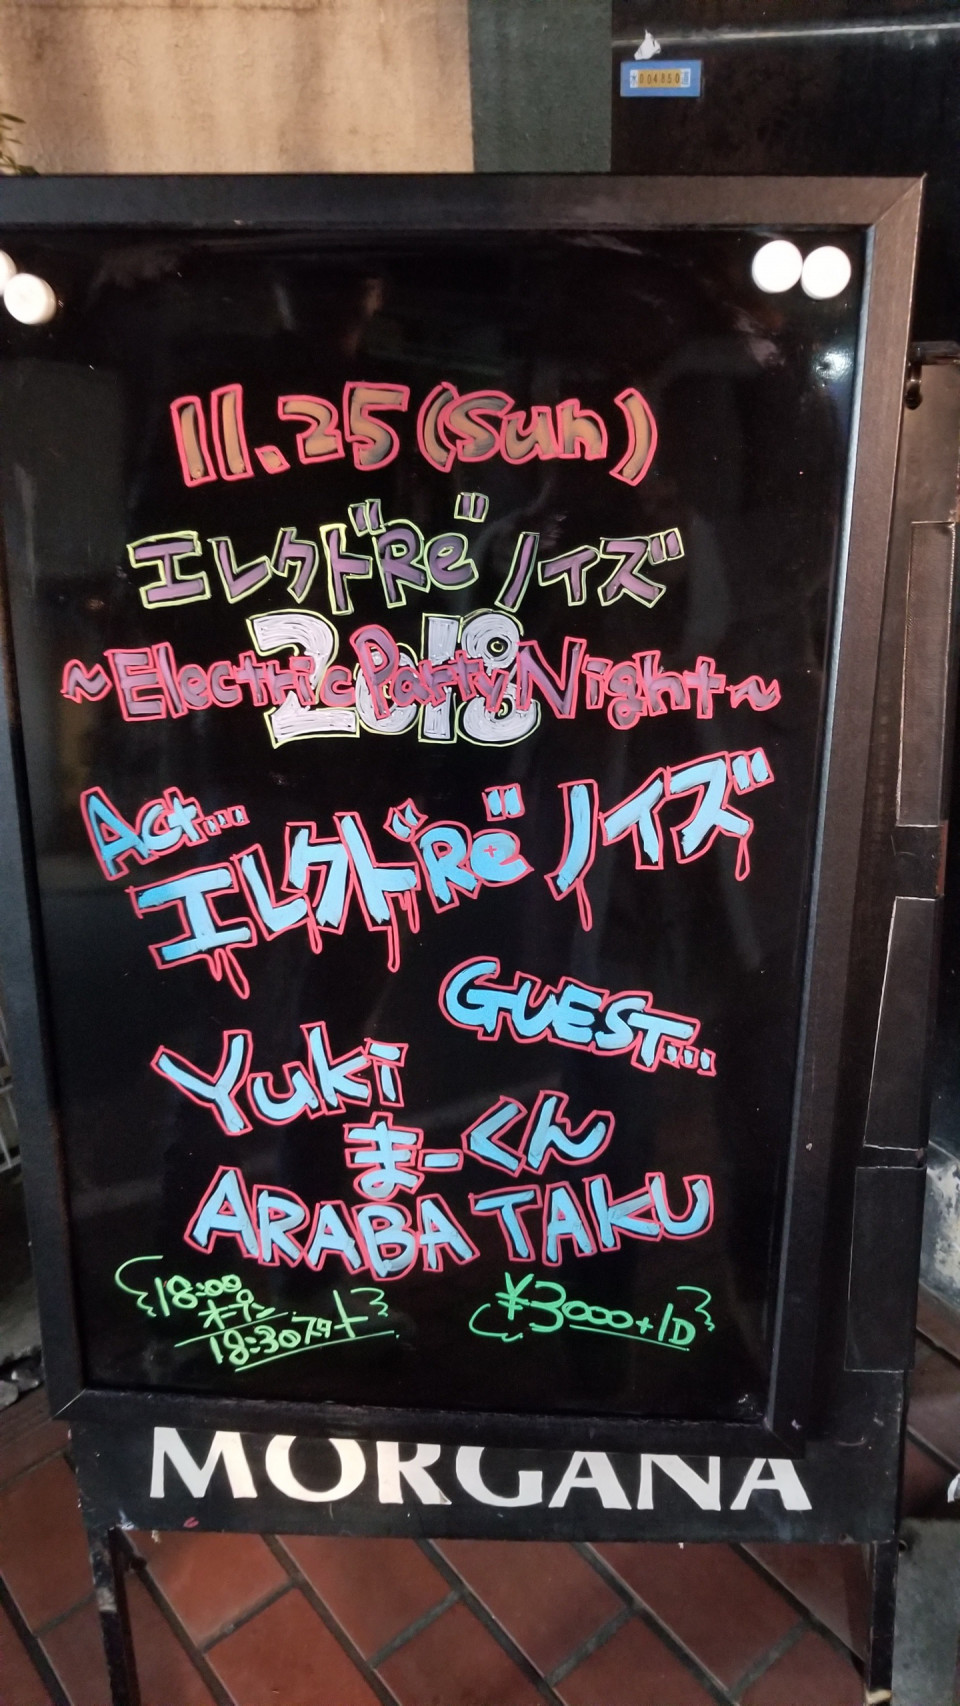 004850
11.25(Sun)
エレクド"Re"ノイズ
2018
~Electric Party Night~
Act...
エレクド"Re"ノイズ
GUEST...
Yuki
まーくん
ARABA TAKU
18:00
オープン
18:30スタート
¥3000+1D
MORGANA